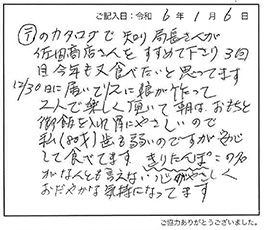 ご記入日：令和 6年 1月 6日
〒のカタログで 知り 局長さんが
佐田商店さんを すすめて下さり 3回
目 今年も又食べたいと思ってます
12/30日に届いてスに娘が作って
2人で楽しく頂いて 朝は、おもちと
御飯を入れ胃にやさしいので
私(80才)歯も弱いのですが安心
して食べてます きりたんぽこの名
がなんとも言えない心がやさしく
おだやかな気持になってます
ご協力ありがとうございました。